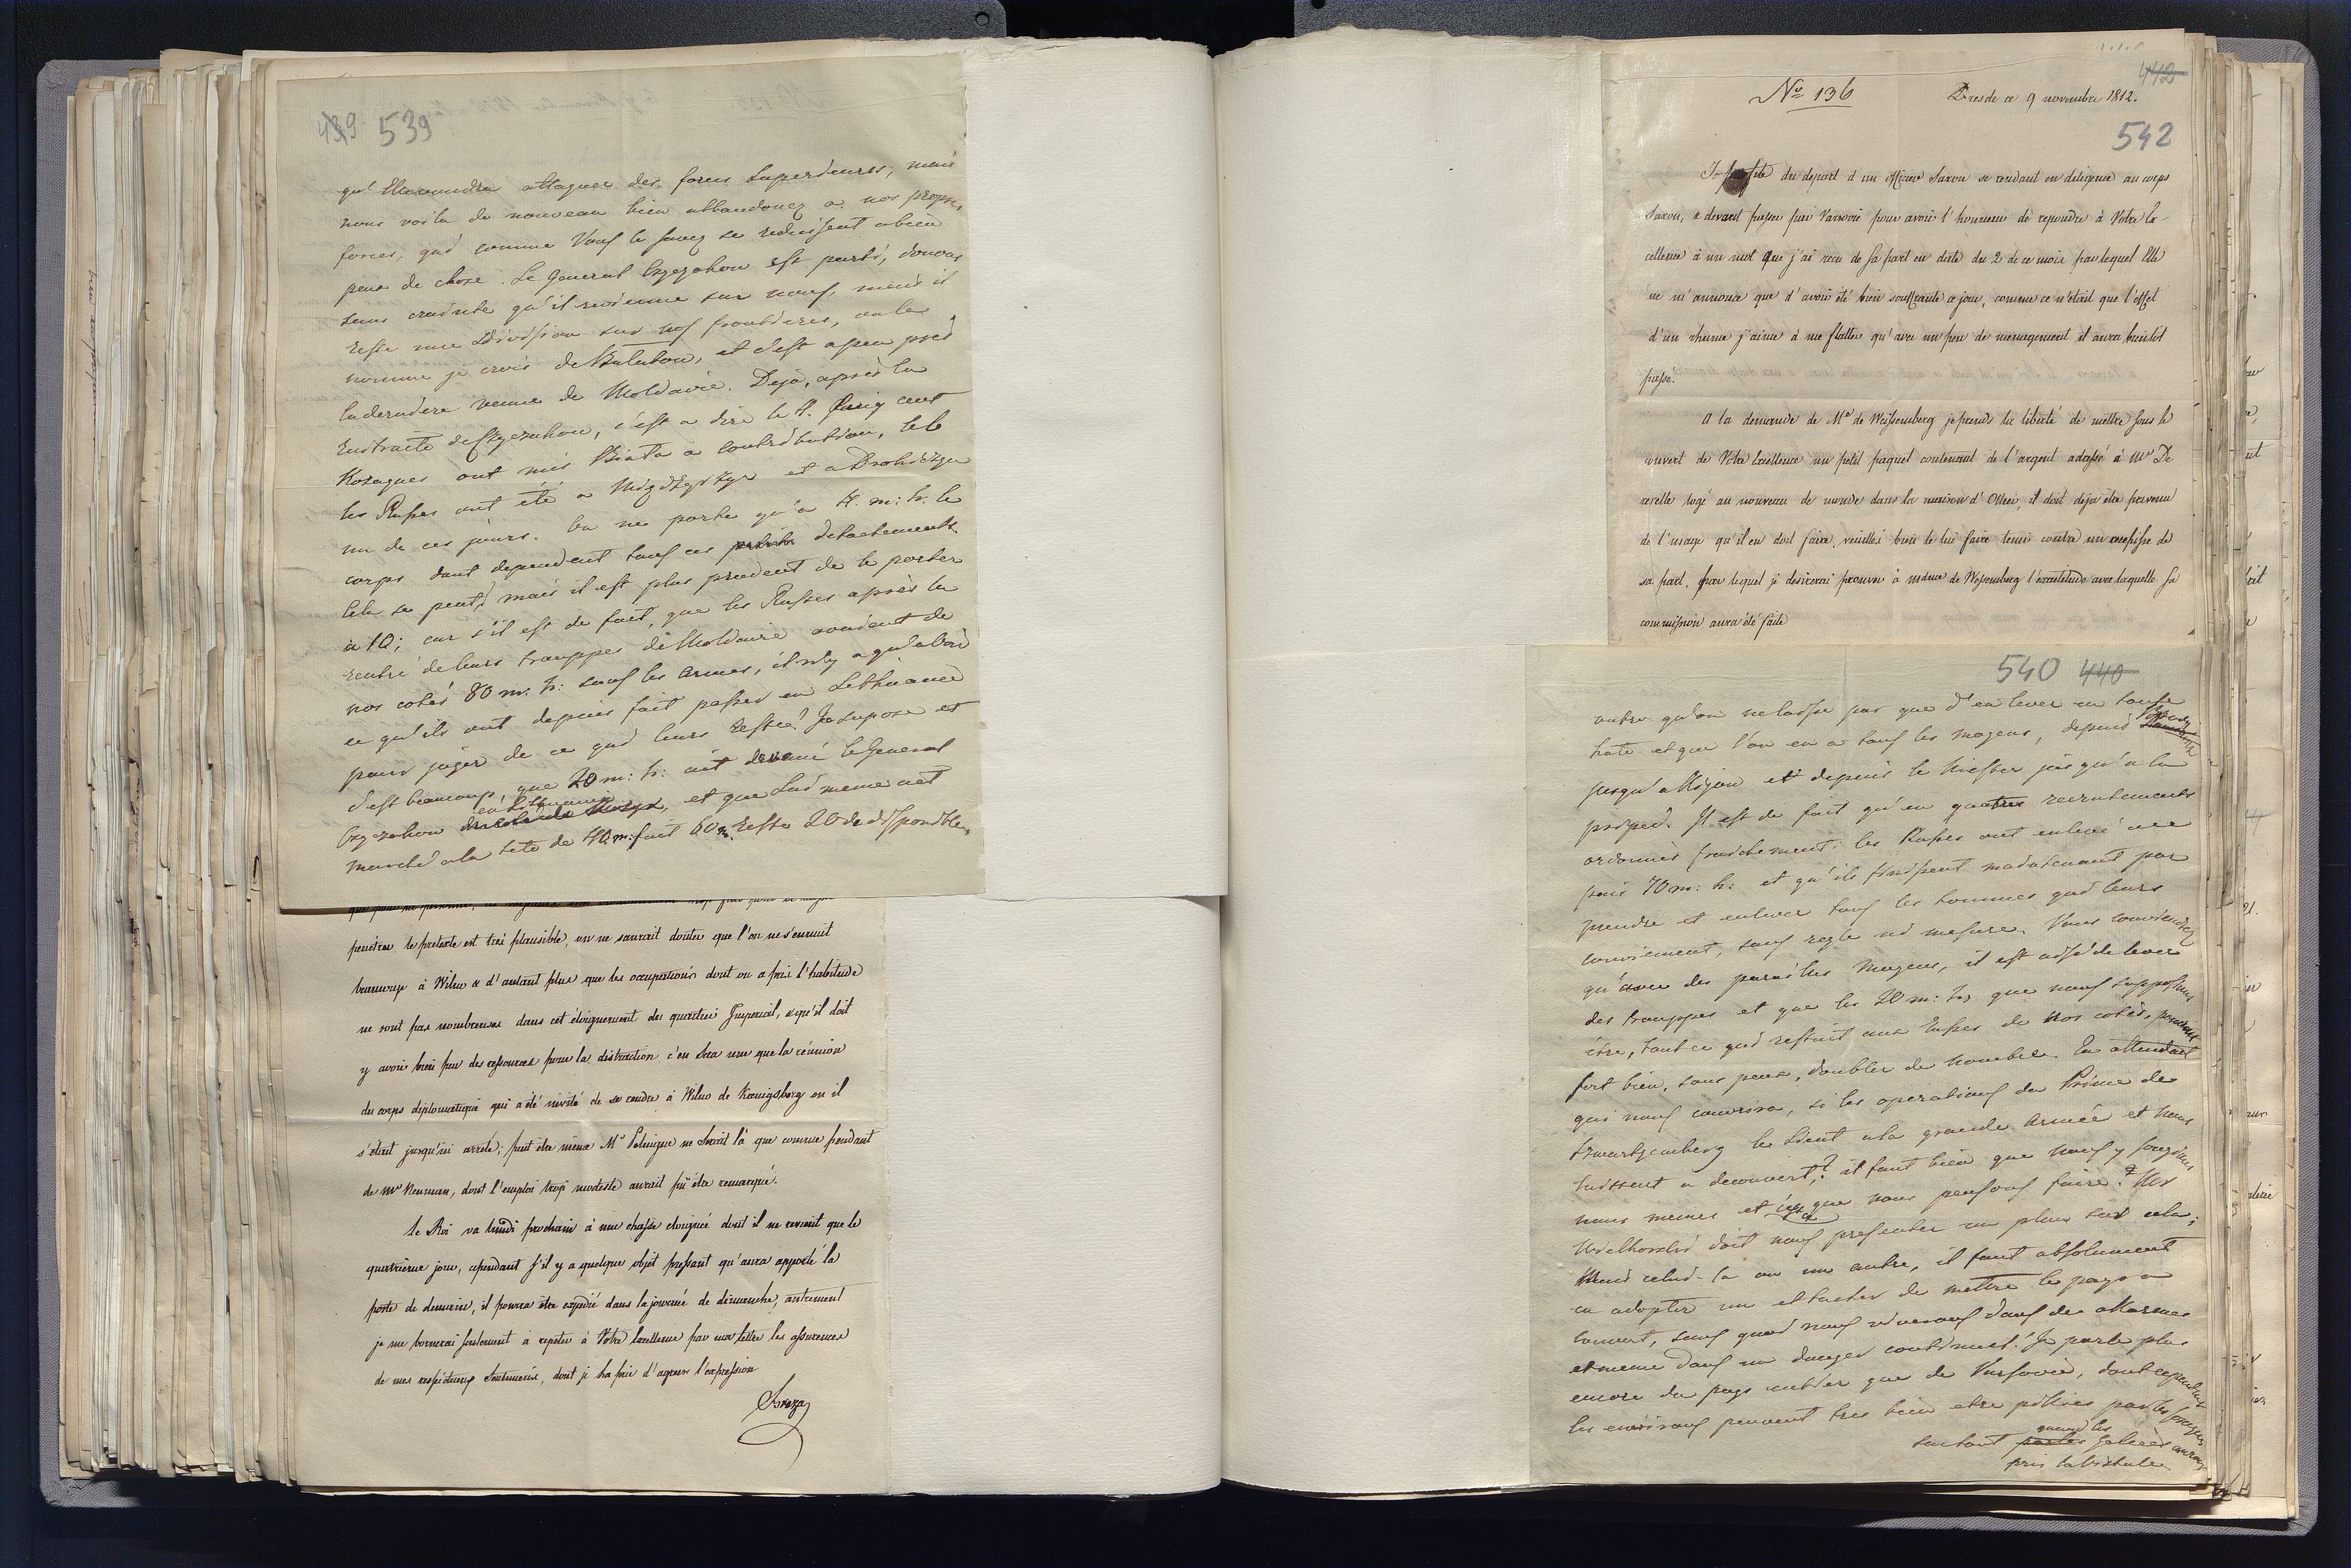 439 539
qu'Elexandre attaquer des forces superieures, mais
nous voila de nouveau bien abbandonez a nos propres
forces, qui comme Vous le savez se reduisent a bien
peu de chose. Le General Czyczakow est parti, donons
sans cradnte qu'il revienne sur nous, mais il
reste une Division sur nos frontieres, on la
nomme je crois de Bulutow, et c'est a peu près
la derniere venue de Moldavie. Deja, après la
Rustraite de Czyczakow, c'est a dire le 4. Cinq cent
Kosaques ont mis Biała a contribution, le 6
les Russes ont été a Międzyrzyc et a Drohiczyn
un de ces jours. On ne porte qu'a 4. m: h. le
corps dont dependent tous ces petits detachements
Cela se peut, mais il est plus prudent de le porter
à 10; car s'il est de fait, que les Russes après la
rentré de leurs trouppes de Moldavie avaient de
nos cotés 80 m. h: sous les armes, il n'y a qu'a voir
ce qu'ils ont depuis fait passer en Lithuanie
pour juger de ce qui leurs reste? Je supose et
c'est beaucoup, que 20 m: h: ait devancé le General
en Lithuanie
Czyczakow et que Lui meme ait
marché a la tete de 40 m: fait 60 m. Reste 20 de disponibles
penétrer le pretexte est très plausible, on ne saurait douter que l'on ne s'ennuit
beaucoup à Wilna & d'autant plus que les occupations dont on a pris l'habitude
ne sont pas nombreuses dans cet éloignement du quartier Imperial, & qu'il doit
y avoir bien peu de ressources pour la distraction c'en sera une que la réunion
du corps diplomatique qui a été invité de se rendre à Wilno de Kœnigsberg où il
s'était jusqu'ici arrêté; peut être même Mr ne serait là que comme pendant
de Mr Neuman, dont l'emploi trop modeste aurait pû être remarqué.
Le Roi va lundi prochain à une chasse éloignée dont il ne revient que le
quatrième jour, cependant s'il y a quelque objet pressant qu'aura apporté la
poste de demain, il pourra être expédié dans la journée de dimanche, autrement
je me bornerai seulement à repeter à Votre Excellence par ma lettre les assurances
de mes respectueux sentimens, dont je la prie d'agréer l'expression
Breza
No 136 Dresde ce 9 novembre 1812.
442
542
Je profite du depart d'un officier Saxon se rendant en diligence au corps
Saxon, & devant passer par Varsovie pour avoir l'honneur de repondre à Votre Ex-
cellence à un mot que j'ai reçu de sa part en date du 2 de ce mois par lequel Elle
ne m'annonce que d'avoir été bien souffrante ce jour, comme ce n'était que l'effet
d'un rhume j'aime à me flatter qu'avec un peu de menagement il aura bientôt
passé.
A la demande de Me de Weissemberg je prends la liberté de mettre sous le
couvert de Votre Excellence un petit paquet contenant de l'argent adressé à Mr De
reselle logé au nouveau de monde dans la maison d' il doit deja être prevenu
de l'usage qu'il en doit faire, veuillés bien le lui faire tenir contre un recepisse de
sa part, par lequel je desirerai prouver à mdme de Wessemberg l'exactitude avec laquelle sa
commission aura été faite
540 440
outre qu'on ne laisse pas que d'en lever en toute
hate et que l'on en a tous les moyens, depuis
jusqu'a Kijow et depuis le Niester jusqu'a la
Il est de fait qu'en quatres recrutements
ordonnés fraichement, les Russes ont enlevé
70 m: h: et qu'ils finissent maintenant par
prendre et enlever tous les hommes qui leurs
conviennent, sans regle ni mesure. Vous conviendrez
qu'avec des pareilles moyens, il est aisé de lever
des trouppes et que les 20 m: h. que nous supposons
être, tout ce qui restait aux Russes de nos cotés, peuvent
fort bien, sous peux, doubler de nombre. En attendant
qui nous couvrira, si les operations du Prince de
Szwartzemberg le Lient a la grande Armée et nous
laissent a decouvert? il faut bien que nous y songions
nous memes et que nous pensons faire? Mr
Wielhorski doit nous presenter un plan sur cela;
Mais celui-la ou un autre, il faut absolument
en adopter un et tacher de mettre le pays a
couvert, sans quoi nous vivrons dans des allarmes
et meme dans un danger continuel. Je parle plus
encore du pays entier que de Varsovie, dont cependant
les environs peuvent tres bien etre pillées par les Cosaques
quand les
surtout glaces auront
pris la Vistule